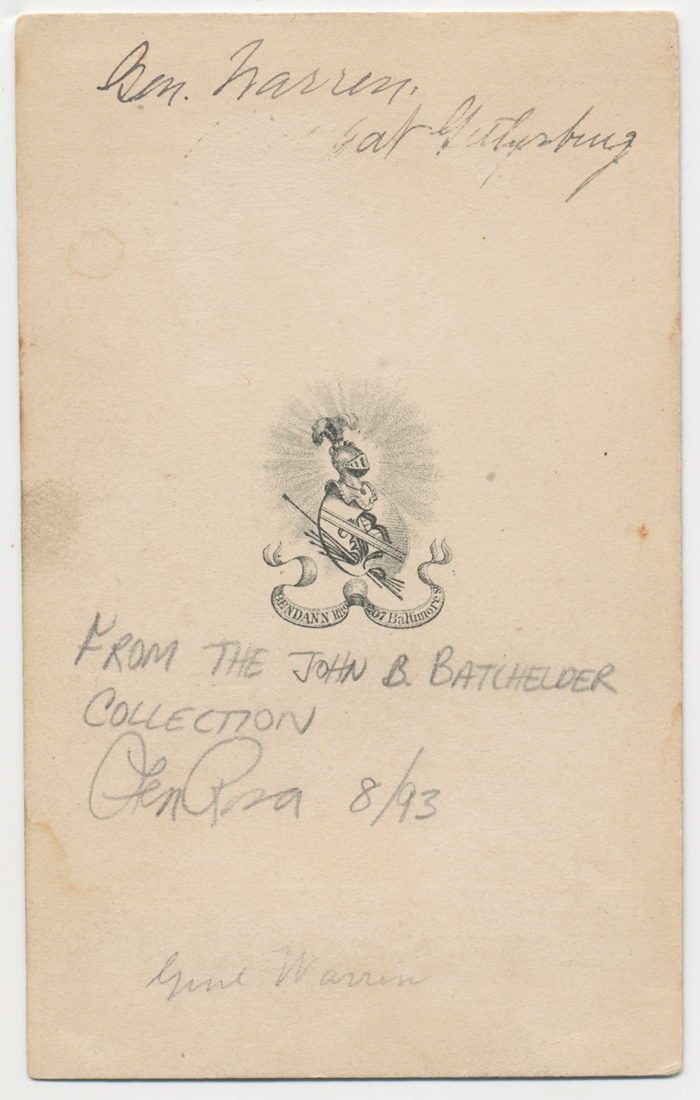 Gen. Warren.
at Gettysburg
BENDANN Bro 207 Baltimore St
FROM THE JOHN B. BATCHELDER
COLLECTION
8/93
Genl Warren